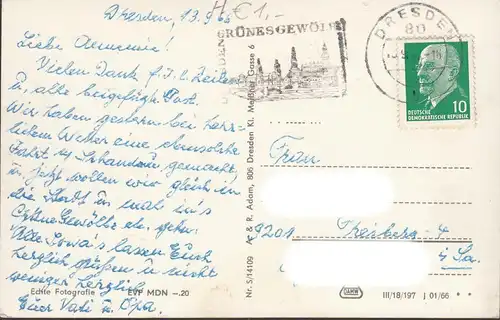 Dresden, 13.9.66
Liebe Annemie!
Vielen Dank f. I. l. Zeilen
u. alle beigefügte Post.
Wir haben gestern bei herr-
lichem Wetter eine
Fahrt n. Schandau gemacht,
u. jetzt wollen wir gleich in
die Stadt u. mal in's
Grüne Gewölbe gehen.
lassen Euch
herzlich grüßen u. nicht
weniger herzlich
Euer Vati u. Opa.
Echte Fotografie EVP MDN -.20
A € 1,-
GRÜNES GEWÖLBE
DRESDEN
80
10
DEUTSCHE
DEMOKRATISCHE REPUBLIK
Nr. S/14109 A. & R. Adam, 806 Dresden Kl. Meißner Gasse 6
Frau
9201 Freiberg-4
Sa.
III/18/197 J 01/66 * *